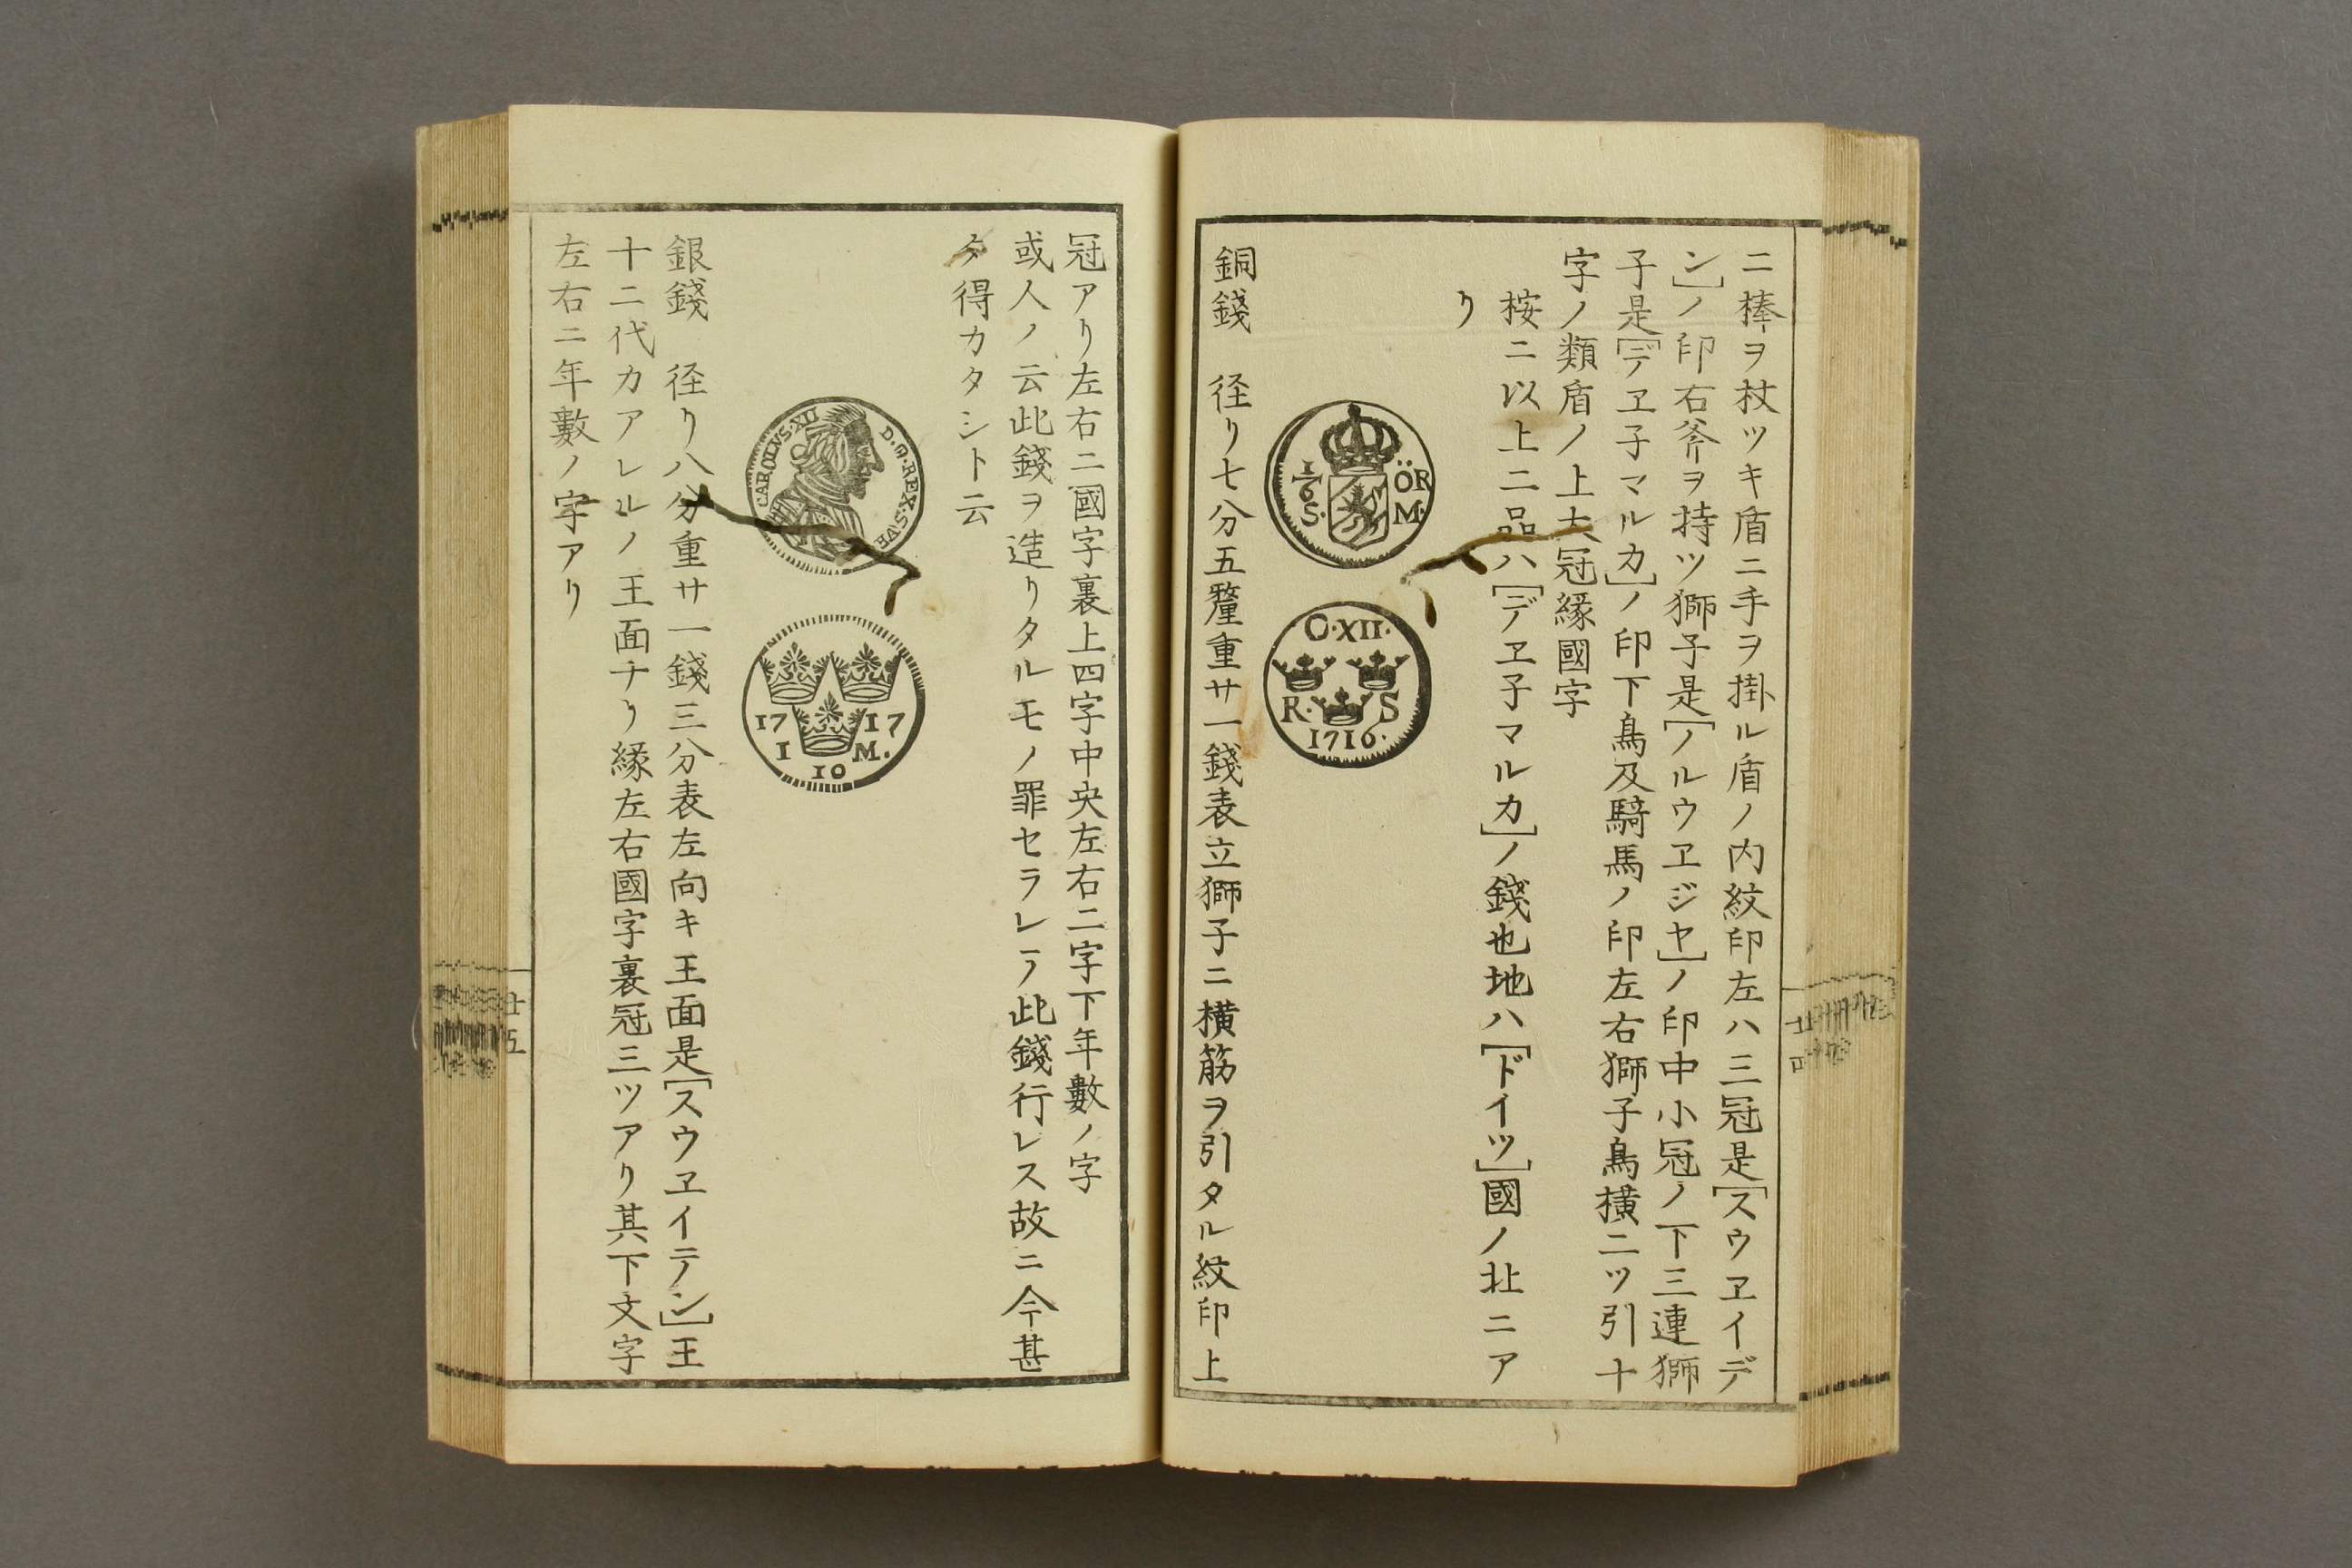 ニ棒ヲ杖ツキ盾ニ手ヲ掛ル盾ノ内紋印左ハ三冠是[スウヱイデ
ン]ノ印右斧ヲ持ツ獅子是[ノルウヱジヤ]ノ印中小冠ノ下三連獅
子是[デヱ子マルカ]ノ印下鳥及騎馬ノ印左右獅子鳥横二ツ引十
字ノ類盾ノ上大冠縁國字
桉ニ以上二品ハ[デヱ子マルカ]ノ錢也地ハ[ドイツ]國ノ北ニア
リ
1/6 ÖR
S. M.
C·XII·
R. S
1716.
銅錢 径リ七分五釐重サ一錢表立獅子ニ横筋ヲ引タル紋印上
廿四
冠アリ左右ニ國字裏上四字中央左右二字下年數ノ字
或人ノ云此錢ヲ造リタルモノ罪セラレテ此錢行レス故ニ今甚
タ得カタシト云
CAROLVS·XII D·G·REX·SVE
17 17
1 M.
10
銀錢 径リ八分重サ一錢三分表左向キ王面是[スウヱイテン]王
十二代カアレルノ王面ナリ縁左右國字裏冠三ツアリ其下文字
左右ニ年數ノ字アリ
廿五